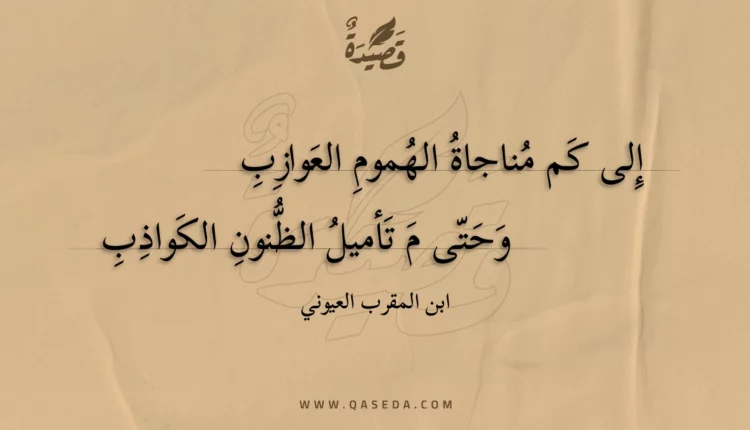 قَصِيدَةٌ
إِلى كَم مُناجاةُ الهُمومِ العَوازِبِ
وَحَتّى مَ تَأميلُ الظُّنونِ الكَواذِبِ
ابن المقرب العيوني
WWW.QASEDA.COM